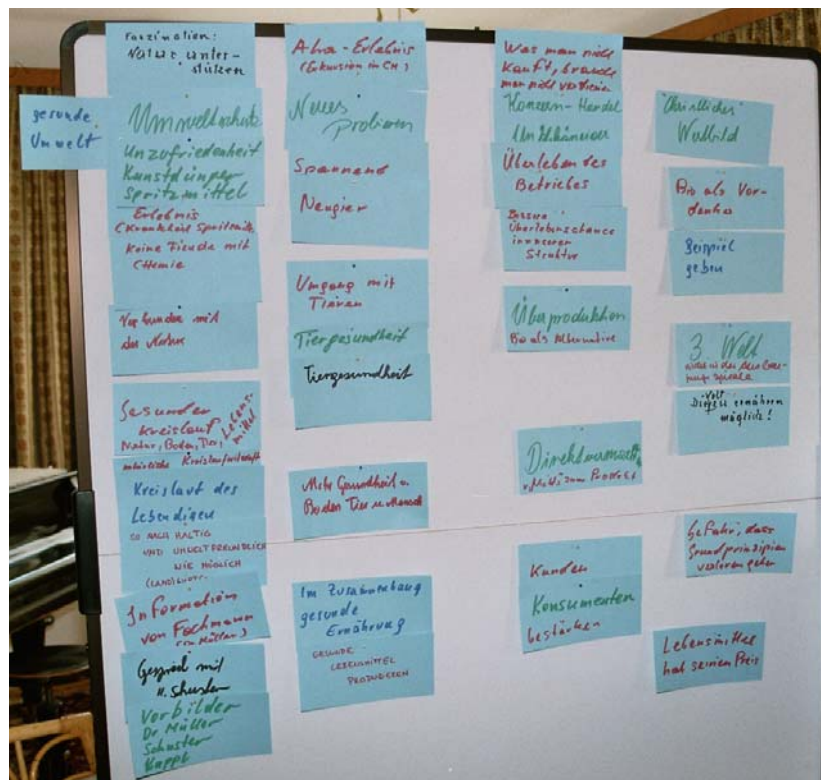 Faszination:
Natur unter-
stützen
gesunde
Umwelt
Umweltschutz
Unzufriedenheit
Kunstdünger
Spritzmittel
Erlebnis
(Krankheit Spritzmittel)
Keine Freude mit
Chemie
Verbunden mit
der Natur
Gesunder
Kreislauf
Natur, Boden, Tier, Lebens-
mittel
natürliche Kreislaufwirtschaft
Kreislauf des
Lebendigen
SO NACHHALTIG
UND UMWELTFREUNDLICH
WIE MÖGLICH
Information
von Fachmann
(Dr. Müller)
Gespräch mit
H. Schuster
Vorbilder
Dr Müller
Schuster
Kappl
Aha-Erlebnis
(Exkursion in CH)
Neues
Probieren
Spannend
Neugier
Umgang mit
Tieren
Tiergesundheit
Tiergesundheit
Mehr Gesundheit v.
Boden Tier u. Mensch
Im Zusammenhang
gesunde
Ernährung
GESUNDE
LEBENSMITTEL
PRODUZIEREN
Was man nicht
kauft, braucht
man nicht verdienen
Konzern-Handel
Überleben des
Betriebes
Bessere
Überlebenschance
in unserer
Struktur
Überproduktion
Bio als Alternative
Direktvermarkt.
Kunden
Konsumenten
bestärken
Christliches
Weltbild
Bio als Vor-
denker
Beispiel
geben
3. Welt
Welt
ernähren
möglich!
Gefahr, dass
Grundprinzipien
verloren gehen
Lebensmittel
hat seinen Preis